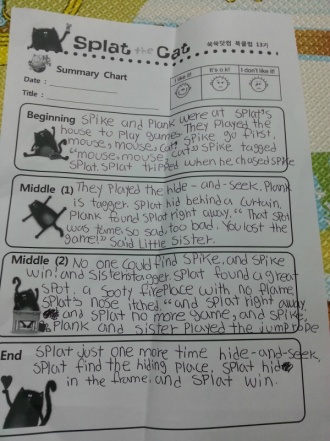 Splat the Cat
쑥쑥닷컴 북클럽 13기
Summary Chart
Date :
Title :
I like it!
It's o.k!
I don't like it!
Beginning
SPike and Plank were at SPlat's
house to Play games. They Played the
mouse, mouse, cat. SPike go first.
"mouse, mouse, cat" SPike tagged
SPlat. SPlat tripped when he chased SPike
Middle (1)
They Played the hide-and-seek. Plank
is tagger. SPlat hid behind a curtain.
Plank found SPlat right away. "That SPot
was tame, so sad, too bad. You lost the
game!" Said Little Sister.
Middle (2)
No one could find SPike, and SPike
win! and Sister tagger. SPlat found a great
SPot. a Sooty firePlace with no flame
SPlat's nose itched "and SPlat right away
and SPlat no more game, and SPike,
Plank and sister Played the jump rope
End
SPlat just one more time hide-and-seek,
SPlat find the hiding Place. SPlat hid
in the frame. and SPlat win.